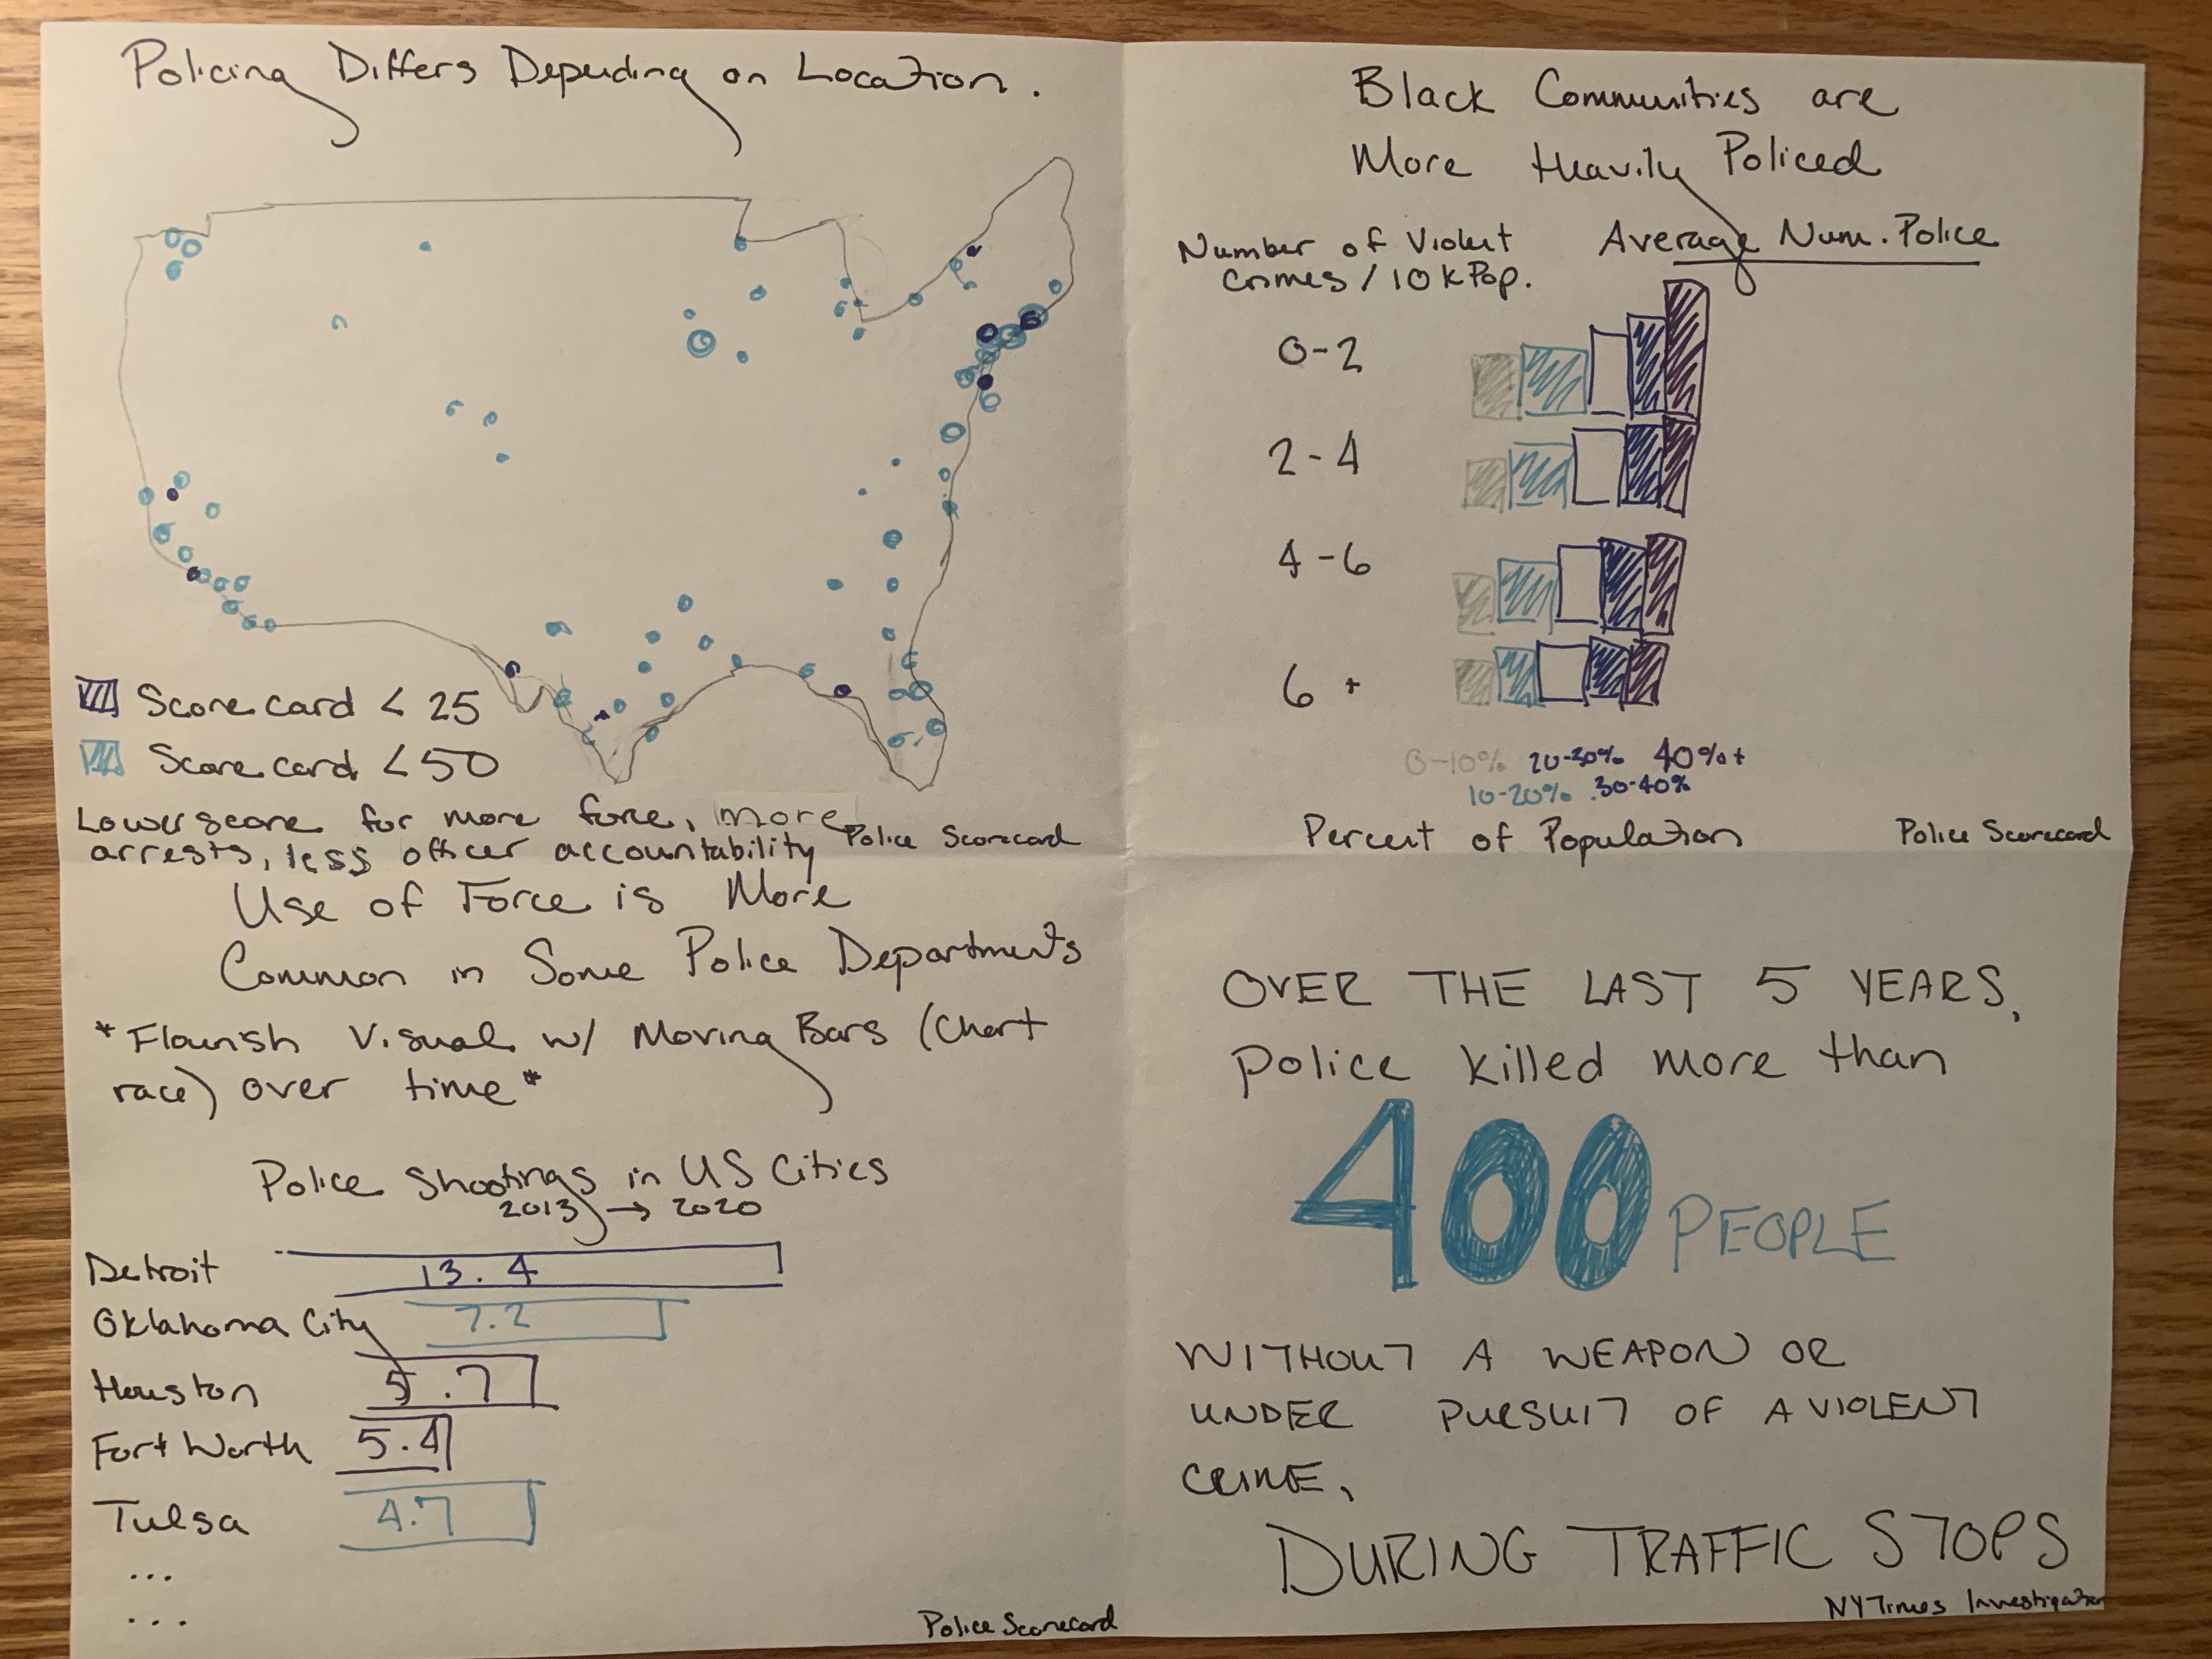 Policing Differs Depending on Location.
Scorecard < 25
Scorecard < 50
Lower score for more force, more
arrests, less officer accountability
Police Scorecard
Black Communities are
More Heavily Policed
Number of Violent
Crimes / 10k Pop.
Average Num. Police
0-2
2-4
4-6
6 +
0-10% 20-30% 40%+
10-20% 30-40%
Percent of Population
Police Scorecard
Use of Force is More
Common in Some Police Departments
*Flourish Visual w/ Moving Bars (Chart
race) over time*
Police Shootings in US Cities
2013 → 2020
Detroit 13.4
Oklahoma City 7.2
Houston 5.7
Fort Worth 5.4
Tulsa 4.7
...
...
Police Scorecard
OVER THE LAST 5 YEARS,
police killed more than
400 PEOPLE
WITHOUT A WEAPON OR
UNDER PURSUIT OF A VIOLENT
CRIME,
DURING TRAFFIC STOPS
NYTimes Investigation